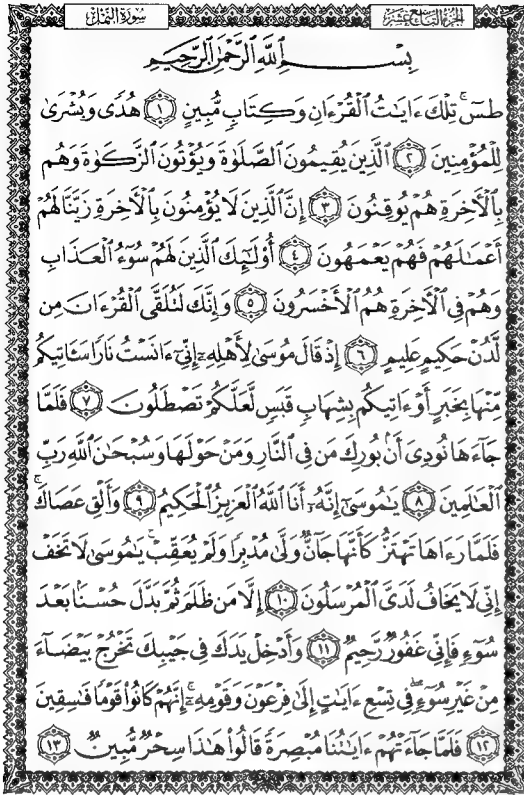 الجزء التاسع عشر
سورة النمل
بِسْمِ ٱللَّهِ ٱلرَّحْمَٰنِ ٱلرَّحِيمِ
طسٓ ۚ تِلْكَ ءَايَٰتُ ٱلْقُرْءَانِ وَكِتَابٍ مُّبِينٍ ١ هُدًى وَبُشْرَىٰ
لِلْمُؤْمِنِينَ ٢ ٱلَّذِينَ يُقِيمُونَ ٱلصَّلَوٰةَ وَيُؤْتُونَ ٱلزَّكَوٰةَ وَهُم
بِٱلْءَاخِرَةِ هُمْ يُوقِنُونَ ٣ إِنَّ ٱلَّذِينَ لَا يُؤْمِنُونَ بِٱلْءَاخِرَةِ زَيَّنَّا لَهُمْ
أَعْمَٰلَهُمْ فَهُمْ يَعْمَهُونَ ٤ أُو۟لَٰٓئِكَ ٱلَّذِينَ لَهُمْ سُوٓءُ ٱلْعَذَابِ
وَهُمْ فِى ٱلْءَاخِرَةِ هُمُ ٱلْأَخْسَرُونَ ٥ وَإِنَّكَ لَتُلَقَّى ٱلْقُرْءَانَ مِن
لَّدُنْ حَكِيمٍ عَلِيمٍ ٦ إِذْ قَالَ مُوسَىٰ لِأَهْلِهِۦٓ إِنِّىٓ ءَانَسْتُ نَارًا سَـَٔاتِيكُم
مِّنْهَا بِخَبَرٍ أَوْ ءَاتِيكُم بِشِهَابٍ قَبَسٍ لَّعَلَّكُمْ تَصْطَلُونَ ٧ فَلَمَّا
جَآءَهَا نُودِىَ أَنۢ بُورِكَ مَن فِى ٱلنَّارِ وَمَنْ حَوْلَهَا وَسُبْحَٰنَ ٱللَّهِ رَبِّ
ٱلْعَٰلَمِينَ ٨ يَٰمُوسَىٰٓ إِنَّهُۥٓ أَنَا ٱللَّهُ ٱلْعَزِيزُ ٱلْحَكِيمُ ٩ وَأَلْقِ عَصَاكَ ۚ
فَلَمَّا رَءَاهَا تَهْتَزُّ كَأَنَّهَا جَآنٌّ وَلَّىٰ مُدْبِرًا وَلَمْ يُعَقِّبْ ۚ يَٰمُوسَىٰ لَا تَخَفْ
إِنِّى لَا يَخَافُ لَدَىَّ ٱلْمُرْسَلُونَ ١٠ إِلَّا مَن ظَلَمَ ثُمَّ بَدَّلَ حُسْنًۢا بَعْدَ
سُوٓءٍ فَإِنِّى غَفُورٌ رَّحِيمٌ ١١ وَأَدْخِلْ يَدَكَ فِى جَيْبِكَ تَخْرُجْ بَيْضَآءَ
مِنْ غَيْرِ سُوٓءٍ ۖ فِى تِسْعِ ءَايَٰتٍ إِلَىٰ فِرْعَوْنَ وَقَوْمِهِۦٓ ۚ إِنَّهُمْ كَانُوا۟ قَوْمًا فَٰسِقِينَ
١٢ فَلَمَّا جَآءَتْهُمْ ءَايَٰتُنَا مُبْصِرَةً قَالُوا۟ هَٰذَا سِحْرٌ مُّبِينٌ ١٣